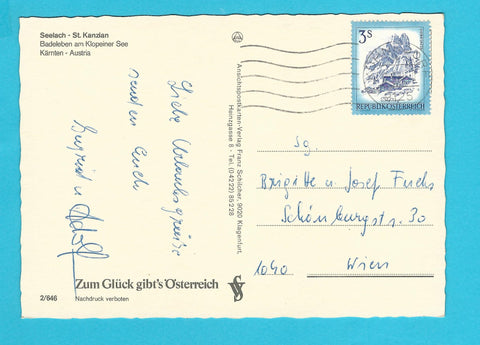 Seelach - St. Kanzian
Badeleben am Klopeiner See
Kärnten - Austria
Liebe Urlaubsgrüße
senden Euch
Sigfried u. Adolf
Zum Glück gibt's Österreich
2/646
Nachdruck verboten
Ansichtspostkarten-Verlag Franz Schilcher, 9020 Klagenfurt,
Hainzgasse 8 - Tel. (04222) 85228
3S
REPUBLIK ÖSTERREICH
Sg.
Brigitte u Josef Fuchs
Schönburgstr. 30
1040 Wien